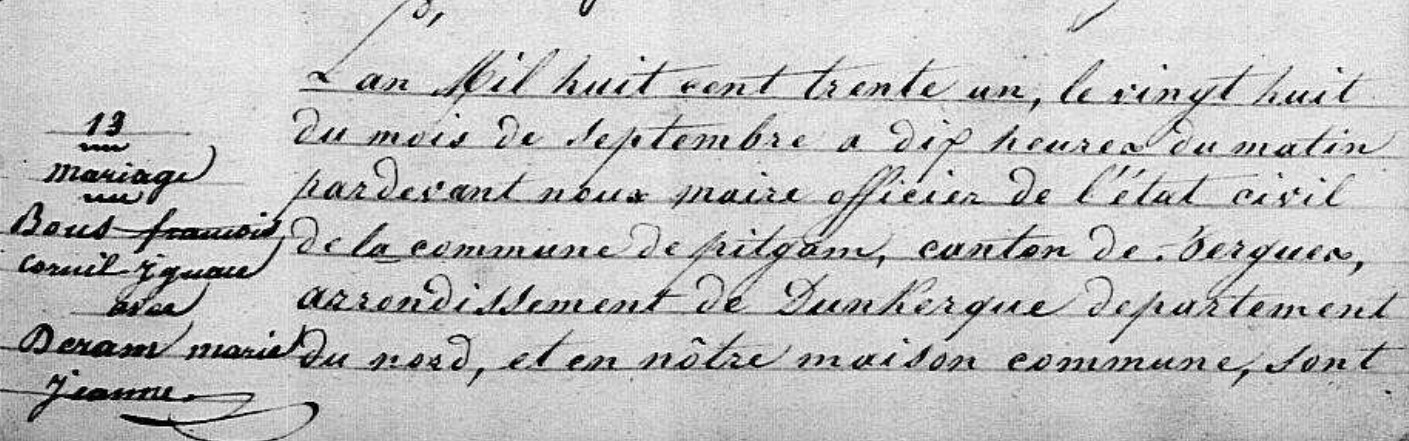 13
mariage
Bous françois
cornil ignace
avec
Deram marie
jeanne.
L'an Mil huit cent trente un, le vingt huit
du mois de septembre a dix heures du matin
pardevant nous maire officier de l'état civil
de la commune de pitgam, canton de Bergues,
arrondissement de Dunkerque departement
du nord, et en nôtre maison commune, sont